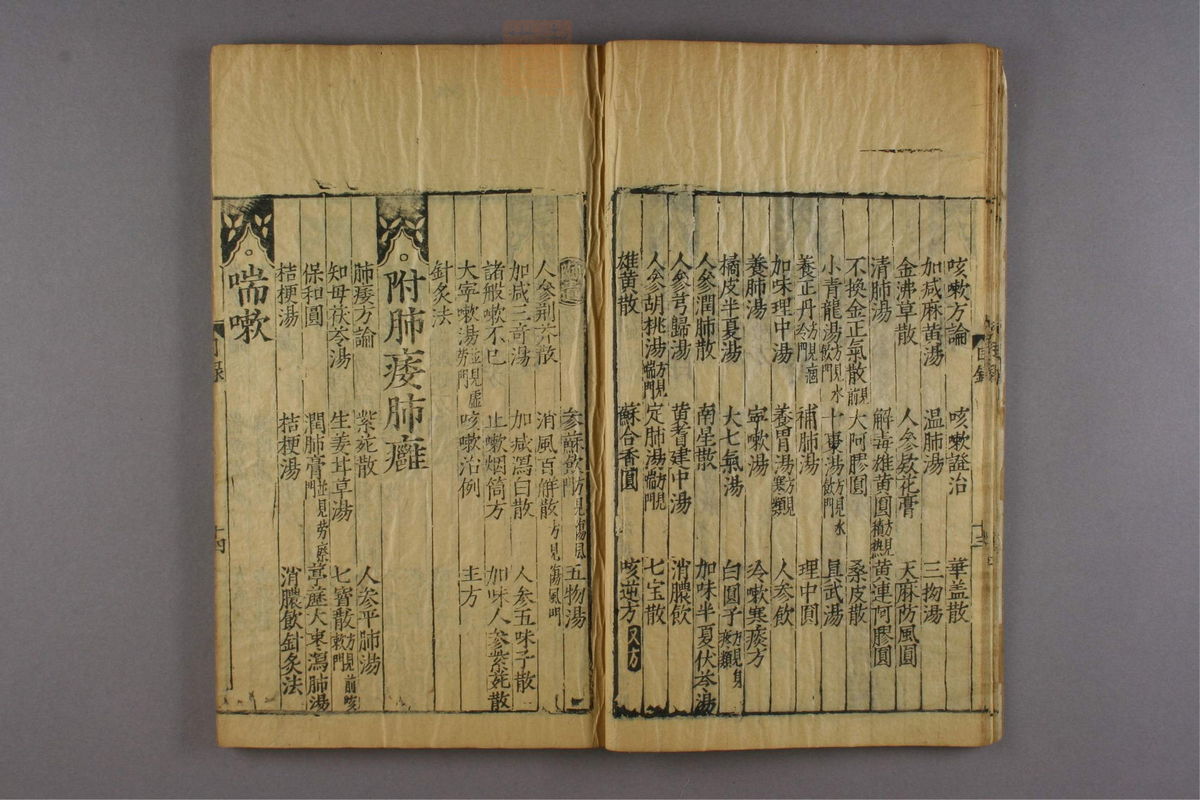 咳嗽方論 咳嗽證治 華盖散
加减麻黄湯 温肺湯 三拗湯
金沸草散 人參欵花膏 天麻防風圓
清肺湯 解毒雄黄圓方見積熱 黄連阿膠圓
不換金正氣散見前 大阿膠圓 桑皮散
小青龍湯方見水飲門 十棗湯方見水飲門 真武湯
養正丹方見痼冷門 補肺湯 理中圓
加味理中湯 養胃湯方見寒類 人參飲
養肺湯 寧嗽湯 冷嗽寒痰方
橘皮半夏湯 大七氣湯 白圓子
人參潤肺散 南星散 加味半夏伏苓湯
人參芎歸湯 黄耆建中湯 消膿飲
人參胡桃湯方見喘門 定肺湯方見喘門 七宝散
雄黄散 蘇合香圓 咳逆方 又方
參蘇飲方見傷風門 五物湯
人參荆芥散 消風百解散方見傷風門
加减三奇湯 加减瀉白散 人參五味子散
諸般嗽不已 止嗽烟筒方 加味人參紫菀散
大寧嗽湯並見虛勞門 咳嗽治例 主方
針灸法
附肺痿肺癰
肺痿方論 紫菀散 人參平肺湯
知母茯苓湯 生姜甘草湯 七寳散方見前咳嗽門
保和圓 潤肺膏並見勞瘵門 葶藶大棗瀉肺湯
桔梗湯 桔梗湯 消膿飲 針灸法
喘嗽